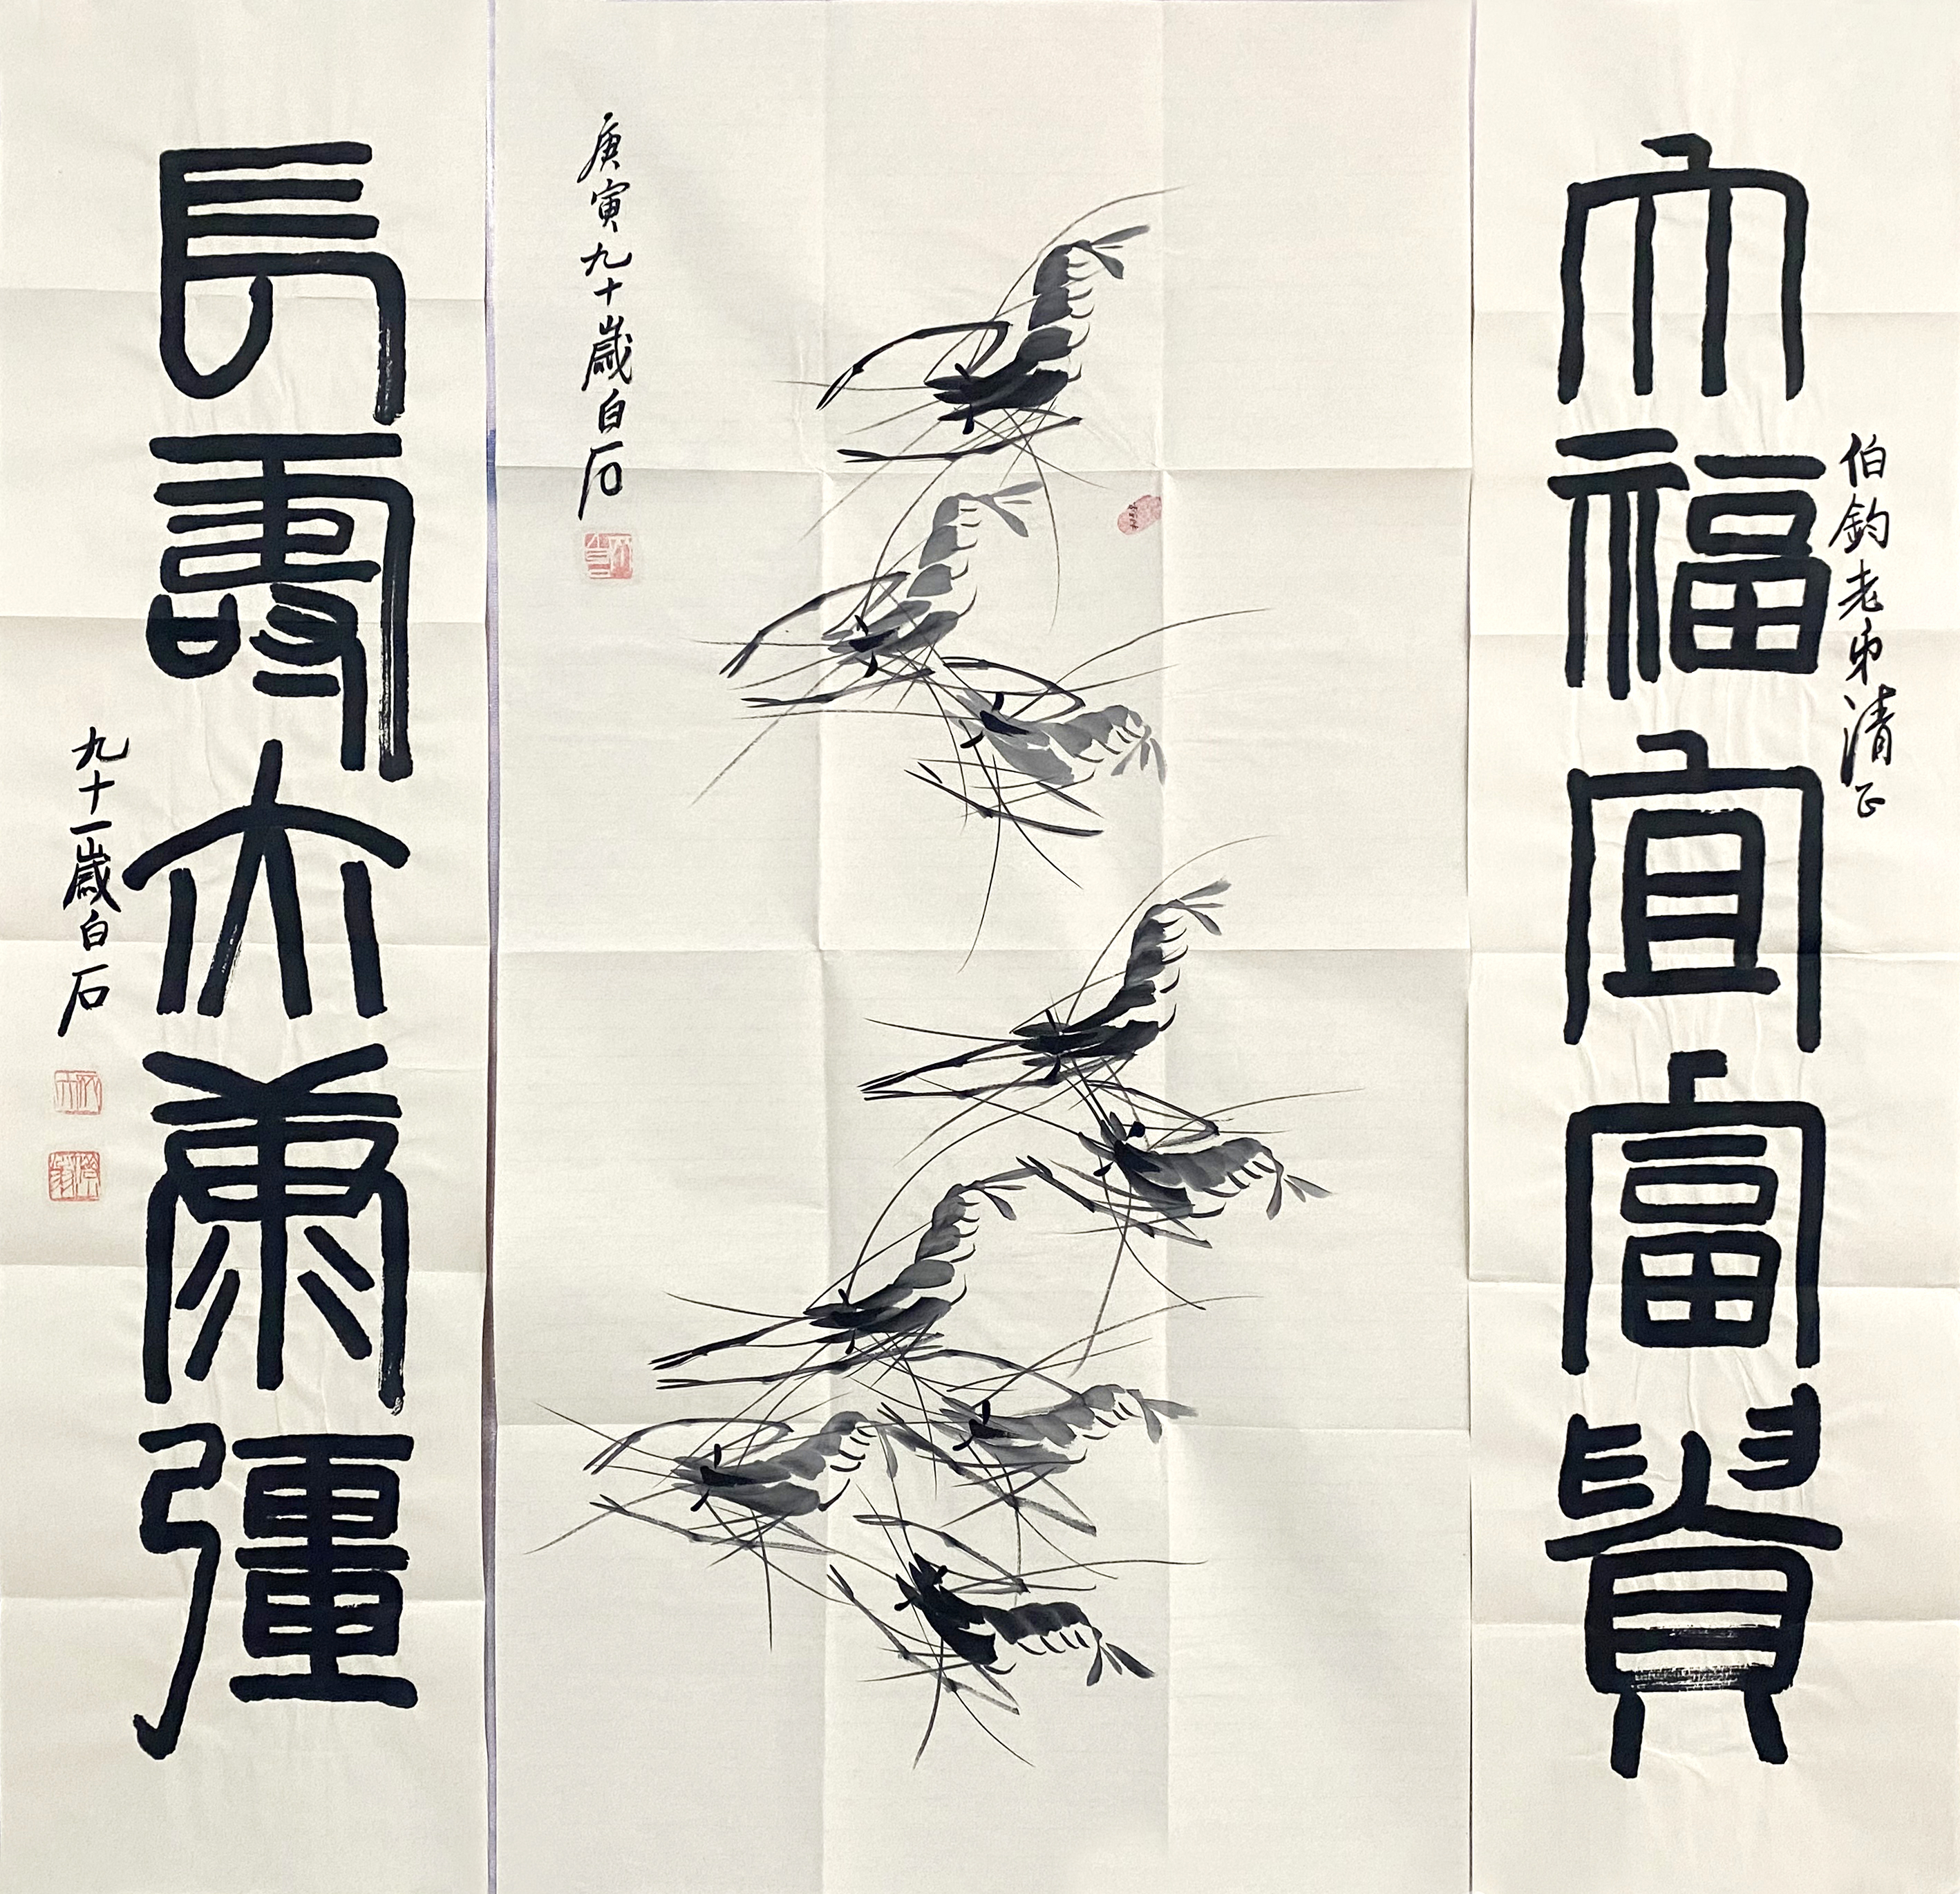 大福宜富貴
伯鈞老弟清正
庚寅九十歲白石
長壽亦康彊
九十一歲白石